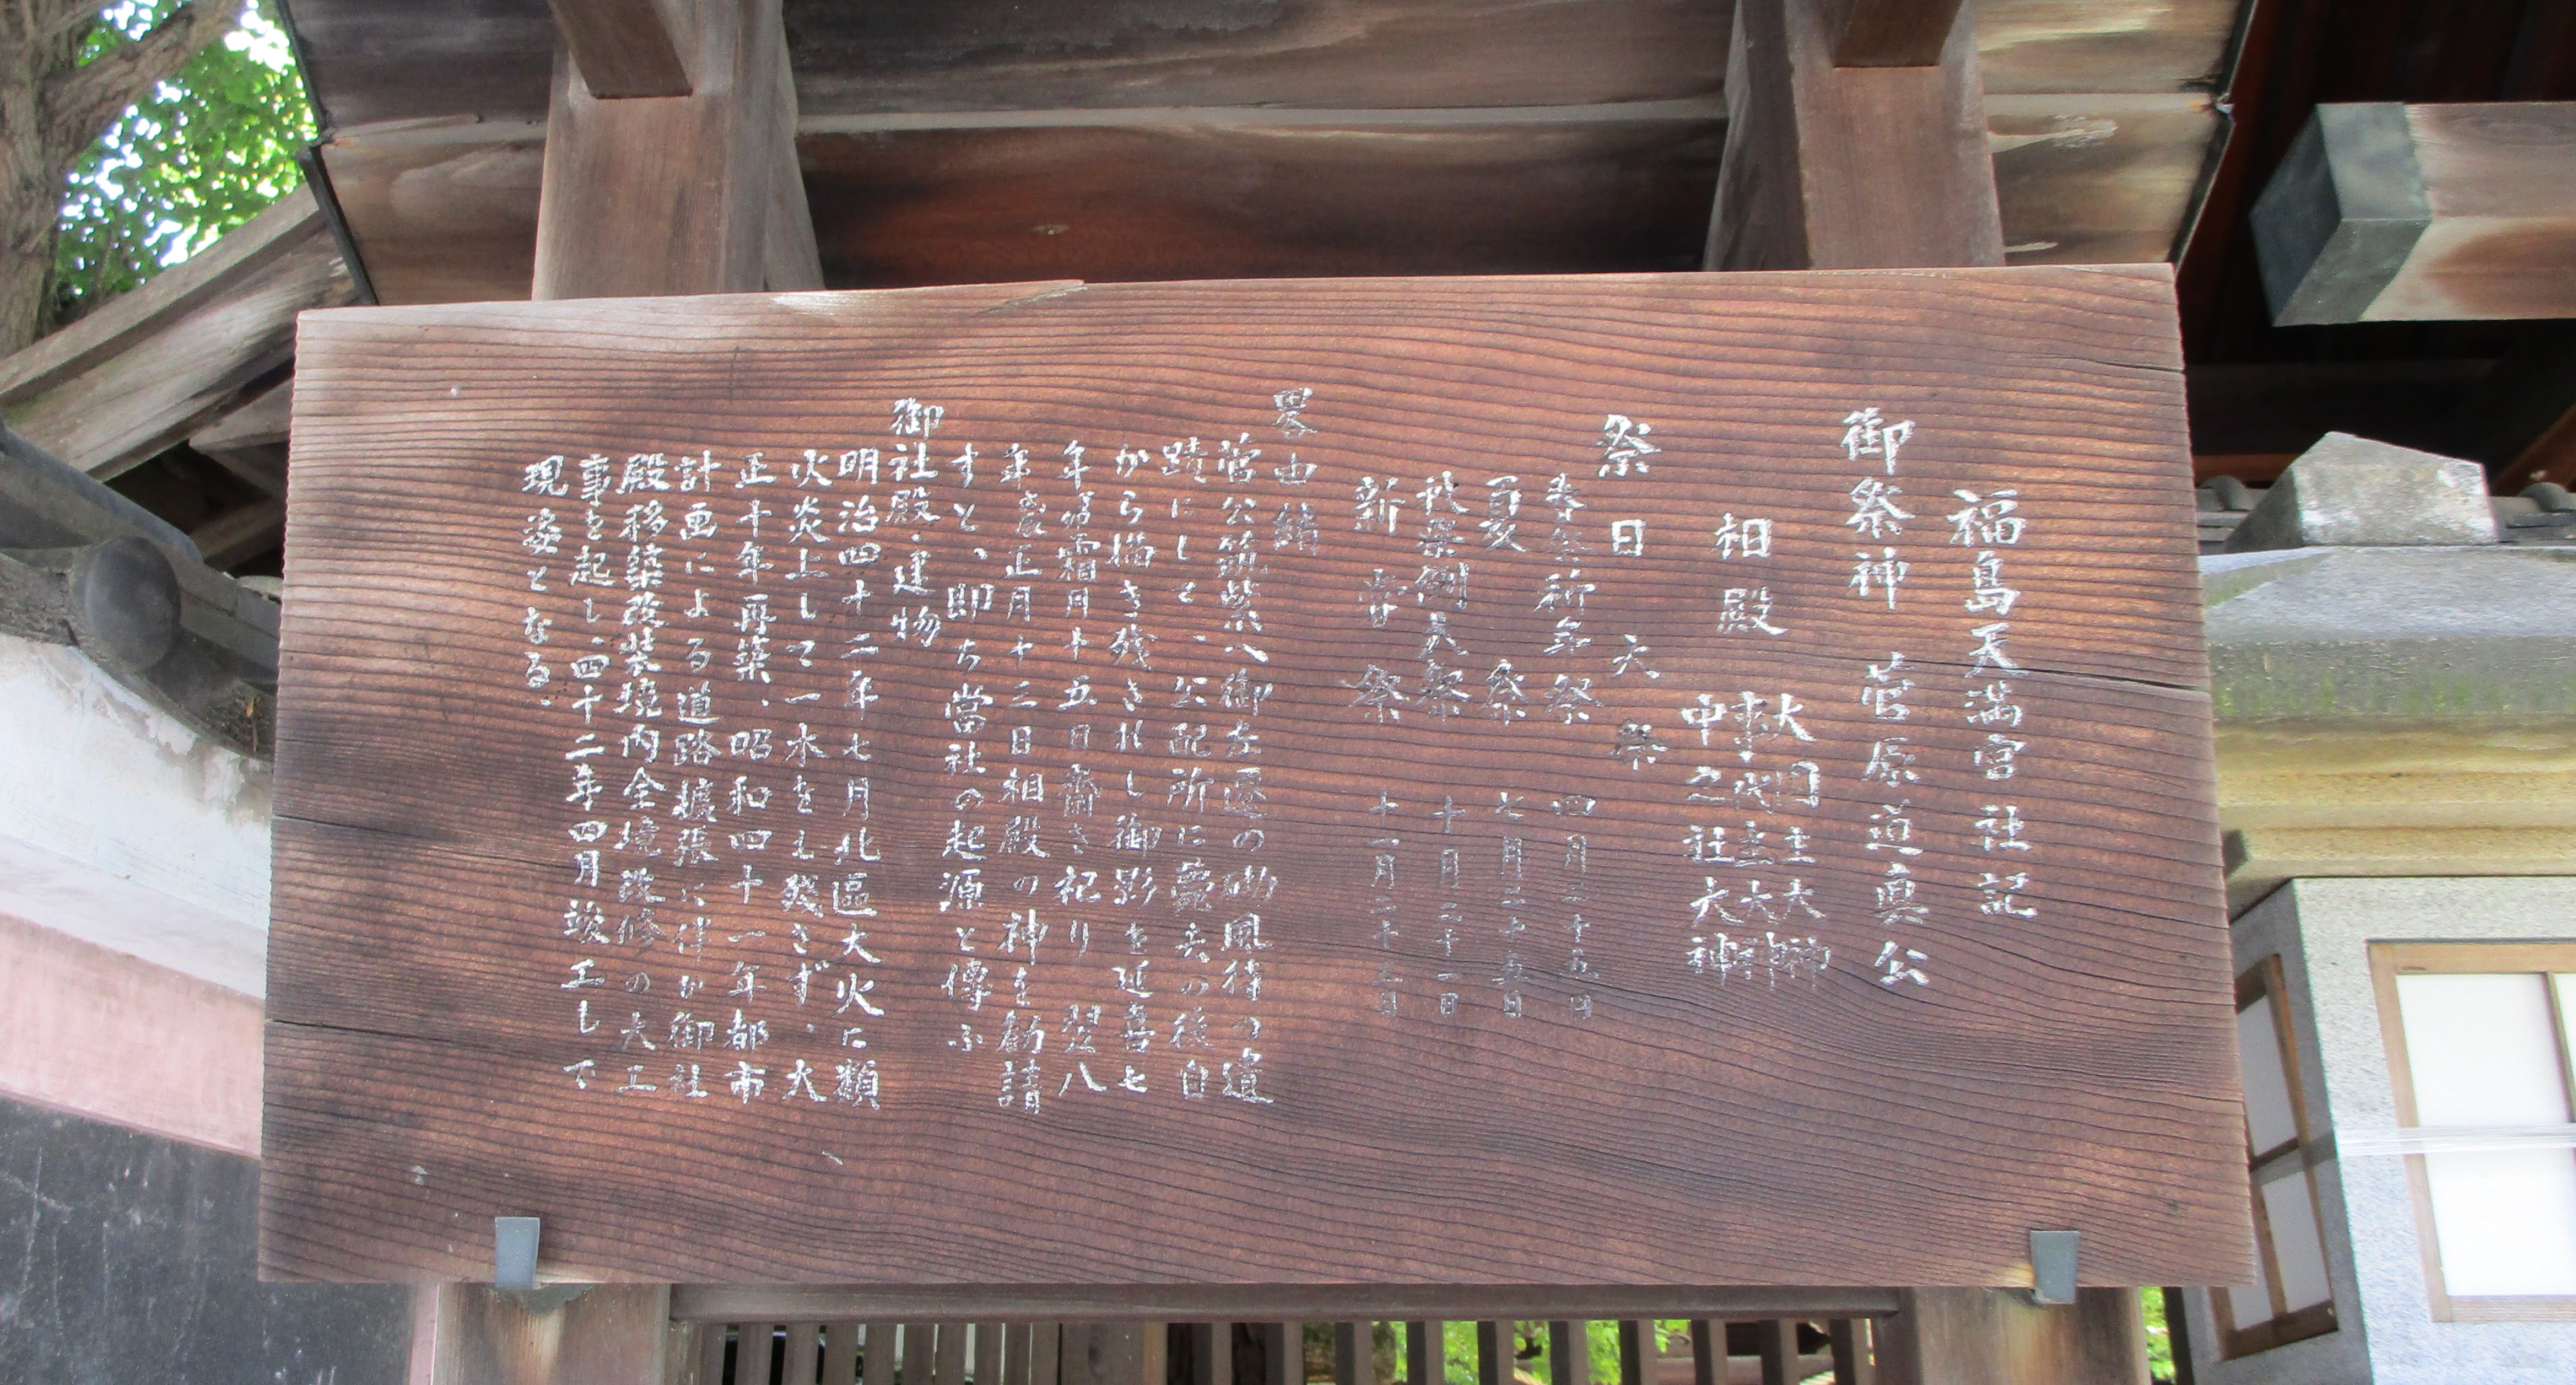 福島天満宮社記
御祭神 菅原道真公
相殿 大国主大神
事代主大神
中之社大神
祭日 大祭
春祭祈年祭 四月二十五日
夏祭 七月二十五日
秋祭例大祭 十月二十一日
新嘗祭 十一月二十三日
畧由緒
菅公筑紫へ御左遷の砌風待の遺
蹟にして、公配所に薨去の後自
から描き残されし御影を延喜七
年霜月十五日齋き祀り翌八
年歳正月十三日相殿の神を勧請
すと、即ち當社の起源と傳ふ
御社殿・建物
明治四十二年七月北區大火に類
火炎上して一水をも残さず、大
正十年再築、昭和四十一年都市
計画による道路擴張に伴ひ御社
殿移築改装境内全境改修の大工
事を起し、四十二年四月竣工して
現姿となる.